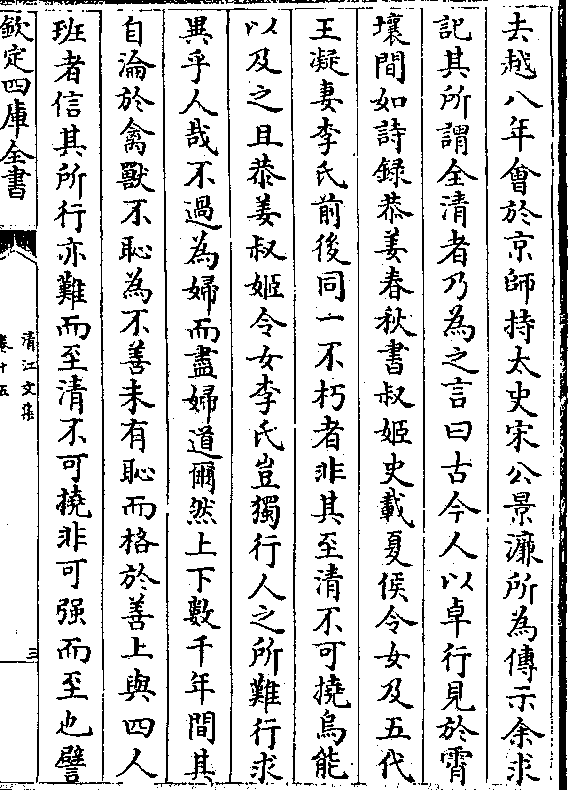 去越八年會於京師持太史宋公景濂所為傳示余求
記其所謂全清者乃為之言曰古今人以卓行見於霄
壤間如詩録恭姜春秋書叔姬史載夏侯令女及五代
王凝妻李氏前後同一不朽者非其至清不可撓烏能
以及之且恭姜叔姬令女李氏豈獨行人之所難行求
異乎人哉不過為婦而盡婦道爾然上下數千年間其
自淪於禽獸不恥為不善未有恥而格於善上與四人
班者信其所行亦難而至清不可撓非可强而至也譬
欽定四庫全書
清江文集
卷十五
三